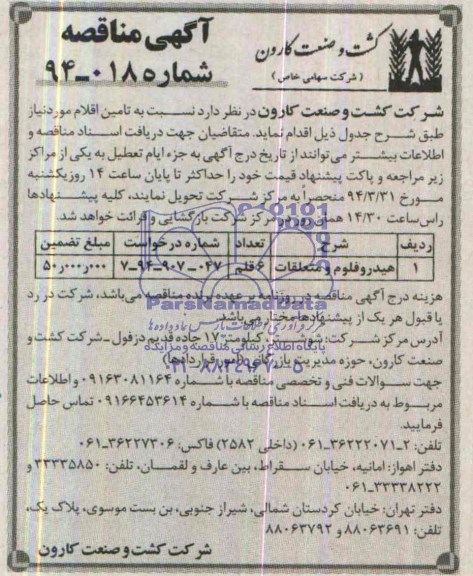 آگهی مناقصه
شماره ۰۱۸-۹۴
کشت و صنعت کارون
(شرکت سهامی خاص)
شرکت کشت و صنعت کارون در نظر دارد نسبت به تامین اقلام موردنیاز
طبق شرح جدول ذیل اقدام نماید. متقاضیان جهت دریافت اسناد مناقصه و
اطلاعات بیشتر می‌توانند از تاریخ درج آگهی به جزء ایام تعطیل به یکی از مراکز
زیر مراجعه و پاکت پیشنهاد قیمت خود را حداکثر تا پایان ساعت ۱۴ روز یکشنبه
مورخ ۹۴/۳/۳۱ منحصراً به مرکز شرکت تحویل نمایند، کلیه پیشنهادها
راس ساعت ۱۴/۳۰ همان روز در مرکز شرکت بازگشایی و قرائت خواهد شد.
ردیف شرح تعداد شماره درخواست مبلغ تضمین
۱ هیدروفلوم و متعلقات ۶ قلم ۷-۹۴-۹۰۷-۰۴۷ ۵۰٫۰۰۰٫۰۰۰
هزینه درج آگهی مناقصه در روزنامه بر عهده برنده مناقصه می‌باشد، شرکت در رد
یا قبول هر یک از پیشنهادها مختار می‌باشد.
آدرس مرکز شرکت: شوشتر، کیلومتر ۱۷ جاده قدیم دزفول - شرکت کشت و
صنعت کارون، حوزه مدیریت بازرگانی (امور قراردادها)
جهت سوالات فنی و تخصصی مناقصه با شماره ۰۹۱۶۳۰۸۱۱۶۴ و اطلاعات
مربوط به دریافت اسناد مناقصه با شماره ۰۹۱۶۶۴۵۳۶۱۴ تماس حاصل
فرمایید.
تلفن: ۲-۰۶۱-۳۶۲۲۲۰۷۱ (داخلی ۲۵۸۲) فاکس: ۰۶۱-۳۶۲۲۷۳۰۶
دفتر اهواز: امانیه، خیابان سقراط، بین عارف و لقمان، تلفن: ۳۳۳۳۵۸۵۰ و
۰۶۱-۳۳۳۳۸۲۲۲
دفتر تهران: خیابان کردستان شمالی، شیراز جنوبی، بن بست موسوی، پلاک یک،
تلفن: ۸۸۰۶۳۶۹۱ و ۸۸۰۶۳۷۹۲
شرکت کشت و صنعت کارون
ParsNamadData
پایگاه اطلاع رسانی مناقصه و مزایده
۰۲۱-۸۸۳۴۹۶۷۰-۵